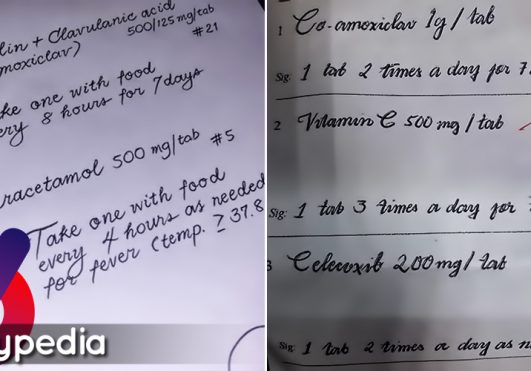 lin + Clavulanic acid
moxiclav) 500/125 mg/tab
#21
ke one with food
ery 8 hours for 7 days
racetamol 500 mg/tab #5
Take one with food
every 4 hours as needed
for fever (temp. ≥ 37.8
ypedia
1 Co-amoxiclav 1g / tab
Sig: 1 tab 2 times a day for 7
2 Vitamin C 500 mg / tab
Sig: 1 tab 3 times a day for
3 Celecoxib 200 mg / tab
Sig: 1 tab 2 times a day as n